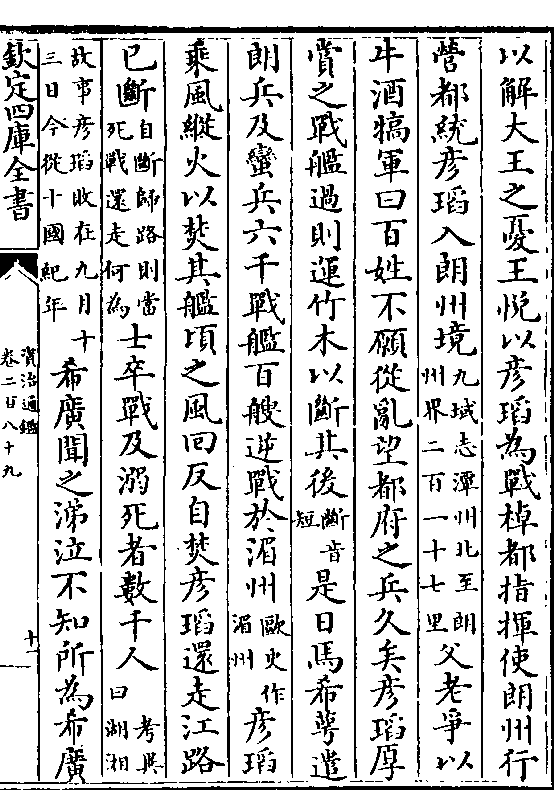 以解大王之憂王悅以彦瑫為戰棹都指揮使朗州行
營都統彦瑫入朗州境九域志潭州北至朗
州界二百一十七里父老爭以
牛酒犒軍曰百姓不願從亂望都府之兵久矣彦瑫厚
賞之戰艦過則運竹木以斷其後斷音
短是日馬希萼遣
朗兵及蠻兵六千戰艦百艘逆戰於湄州歐史作
湄州彦瑫
乘風縱火以焚其艦頃之風回反自焚彦瑫還走江路
已斷自斷歸路則當
死戰還走何為士卒戰及溺死者數千人考異
曰湖湘
故事彦瑫敗在九月十
三日今從十國紀年希廣聞之涕泣不知所為希廣
欽定四庫全書
資治通鑑
卷二百八十九
十一